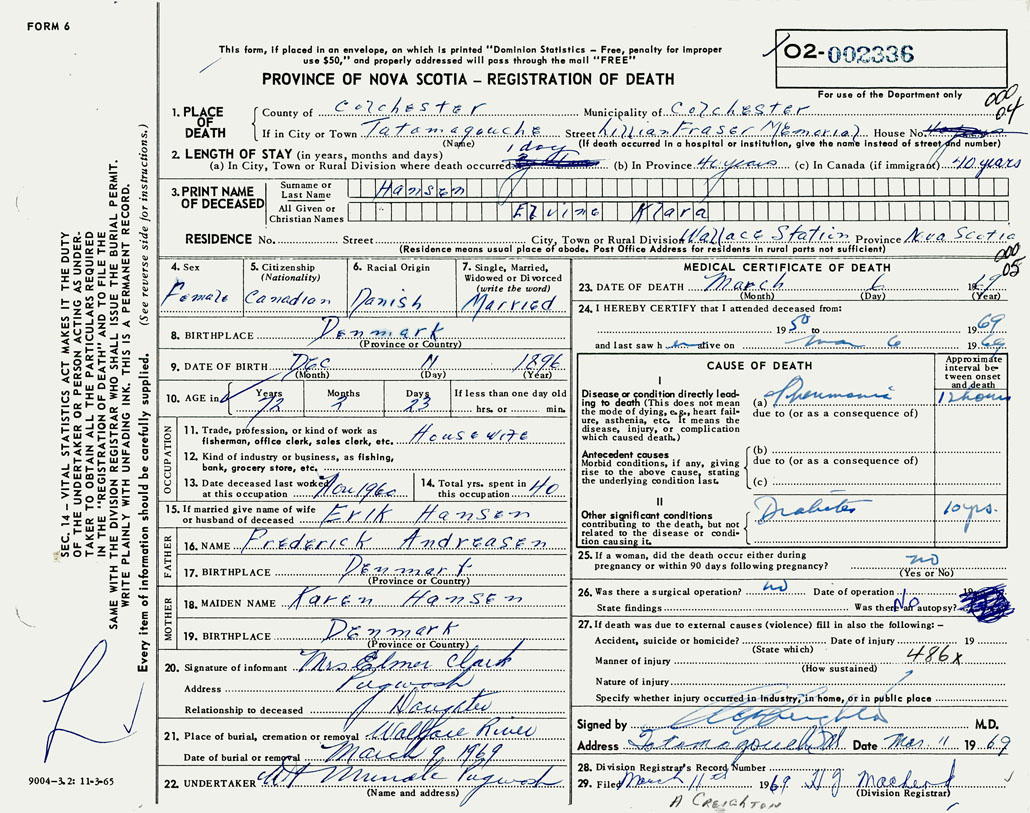 FORM 6
This form, if placed in an envelope, on which is printed "Dominion Statistics – Free, penalty for improper
use $50," and properly addressed will pass through the mail "FREE"
PROVINCE OF NOVA SCOTIA – REGISTRATION OF DEATH
02-002336
For use of the Department only
000 04
1. PLACE OF DEATH County of Colchester Municipality of Colchester
If in City or Town Tatamagouche Street Lillian Fraser Memorial House No.
(Name) (If death occurred in a hospital or institution, give the name instead of street and number)
2. LENGTH OF STAY (in years, months and days) 1 day
(a) In City, Town or Rural Division where death occurred (b) In Province 40 years (c) In Canada (if immigrant) 40 years
3. PRINT NAME OF DECEASED
Surname or Last Name Hansen
All Given or Christian Names Elvine Klara
RESIDENCE No. Street City, Town or Rural Division Wallace Station Province Nova Scotia
(Residence means usual place of abode. Post Office Address for residents in rural parts not sufficient)
000 05
4. Sex Female
5. Citizenship (Nationality) Canadian
6. Racial Origin Danish
7. Single, Married, Widowed or Divorced (write the word) Married
8. BIRTHPLACE Denmark
(Province or Country)
9. DATE OF BIRTH Dec 11 1896
(Month) (Day) (Year)
10. AGE in Years 72 Months 2 Days 23 If less than one day old hrs. or min.
OCCUPATION
11. Trade, profession, or kind of work as fisherman, office clerk, sales clerk, etc. Housewife
12. Kind of industry or business, as fishing, bank, grocery store, etc.
13. Date deceased last worked at this occupation Nov 1960 14. Total yrs. spent in this occupation 40
15. If married give name of wife or husband of deceased Erik Hansen
FATHER
16. NAME Frederick Andreasen
17. BIRTHPLACE Denmark
(Province or Country)
MOTHER
18. MAIDEN NAME Karen Hansen
19. BIRTHPLACE Denmark
(Province or Country)
20. Signature of informant Mrs Elmer Clark
Address Pugwash
Relationship to deceased Daughter
21. Place of burial, cremation or removal Wallace River
Date of burial or removal March 9, 1969
22. UNDERTAKER Pugwash
(Name and address)
MEDICAL CERTIFICATE OF DEATH
23. DATE OF DEATH March 6 1969
(Month) (Day) (Year)
24. I HEREBY CERTIFY that I attended deceased from:
1950 to 1969
and last saw h er alive on Mar 6 1969
CAUSE OF DEATH
Approximate interval between onset and death
I
Disease or condition directly leading to death (This does not mean the mode of dying, e.g., heart failure, asthenia, etc. It means the disease, injury, or complication which caused death.)
(a) Pneumonia 12 hours
due to (or as a consequence of)
Antecedent causes
Morbid conditions, if any, giving rise to the above cause, stating the underlying condition last.
(b)
due to (or as a consequence of)
(c)
II
Other significant conditions contributing to the death, but not related to the disease or condition causing it.
Diabetes 10 yrs.
25. If a woman, did the death occur either during pregnancy or within 90 days following pregnancy? no
(Yes or No)
26. Was there a surgical operation? no Date of operation 19
State findings Was there an autopsy? No
27. If death was due to external causes (violence) fill in also the following: –
Accident, suicide or homicide? Date of injury 19
(State which)
486x
Manner of injury
(How sustained)
Nature of injury
Specify whether injury occurred in industry, in home, or in public place
Signed by M.D.
Address Tatamagouche NS Date Mar 11 1969
28. Division Registrar's Record Number
29. Filed March 11th 1969
(Division Registrar)
A CREIGHTON
SEC. 14 – VITAL STATISTICS ACT MAKES IT THE DUTY
OF THE UNDERTAKER OR PERSON ACTING AS UNDER-
TAKER TO OBTAIN ALL THE PARTICULARS REQUIRED
IN THE "REGISTRATION OF DEATH" AND TO FILE THE
SAME WITH THE DIVISION REGISTRAR WHO SHALL ISSUE THE BURIAL PERMIT.
WRITE PLAINLY WITH UNFADING INK. THIS IS A PERMANENT RECORD.
Every item of information should be carefully supplied. (See reverse side for instructions.)
9004-3.2: 11-3-65